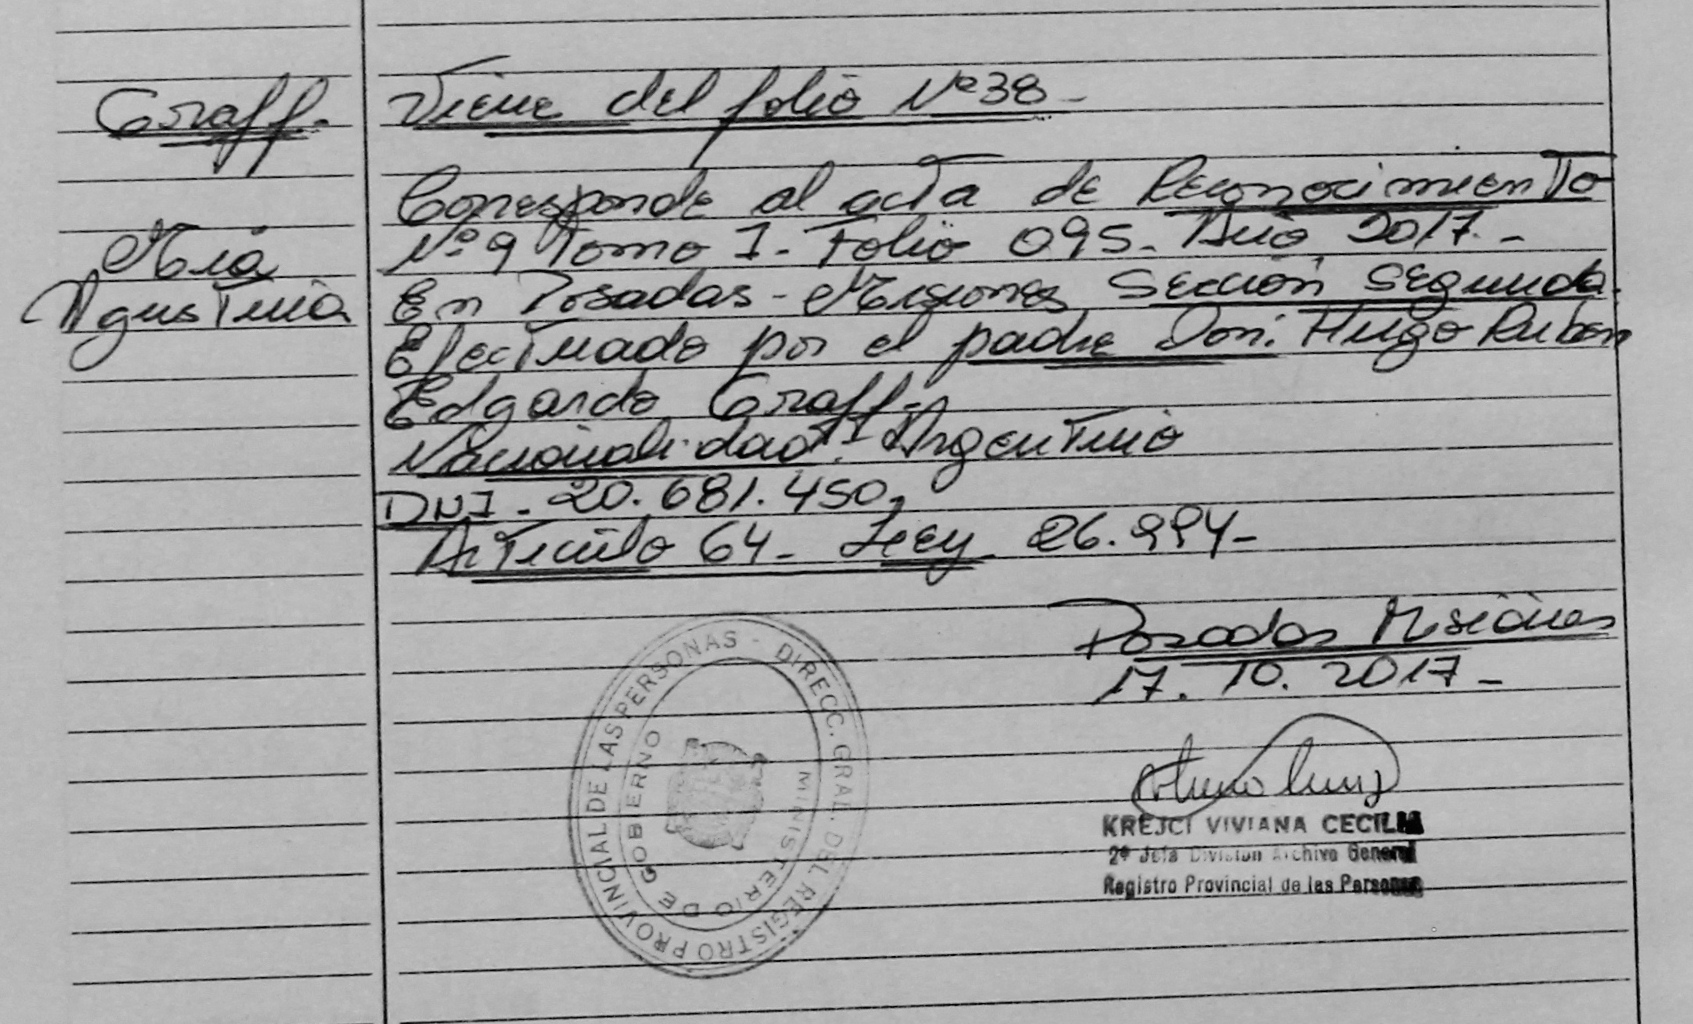 Graff.
Mia
Agustina
Viene del folio Nº 38-
Corresponde al acta de Reconocimiento
Nº 9 Tomo I - Folio 095 - Año 2017.-
En Posadas - Misiones Sección Segunda.
Efectuado por el padre Don: Hugo Ruben
Edgardo Graff.-
Nacionalidad: Argentino
DNI - 20.681.450,
Articulo 64 - Ley 26.994-
Posadas Misiones
17.10.2017-
DIRECC. GRAL. DEL REGISTRO PROVINCIAL DE LAS PERSONAS -
MINISTERIO DE GOBIERNO
KREJCI VIVIANA CECILIA
2º Jefa División Archivo General
Registro Provincial de las Personas